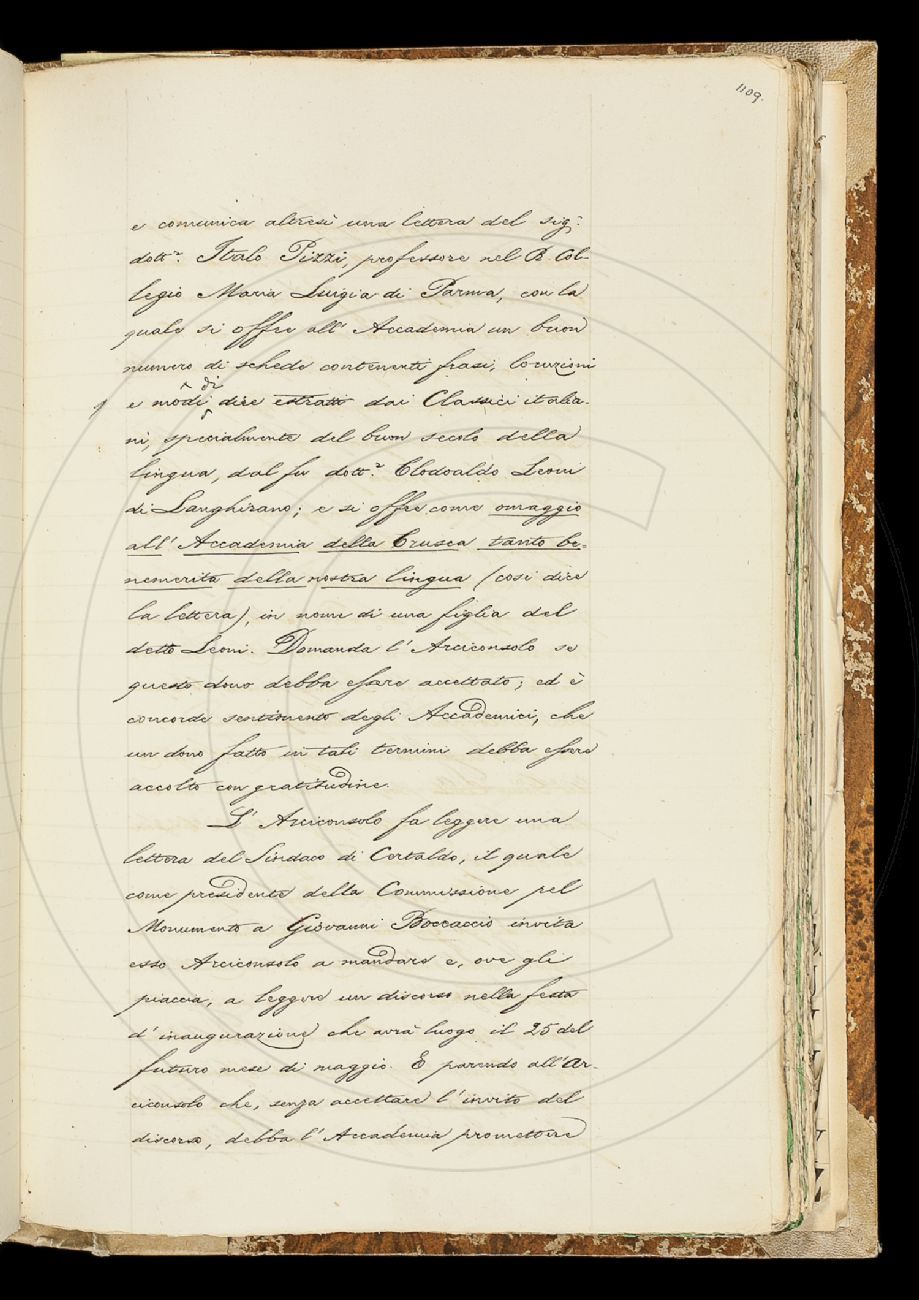 1109.
e comunica altresì una lettera del sig.r
dott.r Italo Pizzi, professore nel R. Col-
legio Maria Luigia di Parma, con la
quale si offre all' Accademia un buon
numero di schede contenenti frasi, locuzioni
e modi di dire estratto dai Classici italia-
ni, specialmente del buon secolo della
lingua, dal fu dott.r Clodoaldo Leoni
di Langhirano; e si offre come omaggio
all' Accademia della Crusca tanto be-
nemerita della nostra lingua (così dice
la lettera), in nome di una figlia del
detto Leoni. Domanda l' Arciconsolo se
questo dono debba essere accettato; ed è
concorde sentimento degli Accademici, che
un dono fatto in tali termini debba essere
accolto con gratitudine.
L' Arciconsolo fa leggere una
lettera del Sindaco di Certaldo, il quale
come presidente della Commissione pel
Monumento a Giovanni Boccaccio invita
esso Arciconsolo a mandare e, ove gli
piaccia, a leggere un discorso nella festa
d' inaugurazione che avrà luogo il 25 del
futuro mese di maggio. E parendo all' Ar-
ciconsolo che, senza accettare l' invito del
discorso, debba l' Accademia promettere